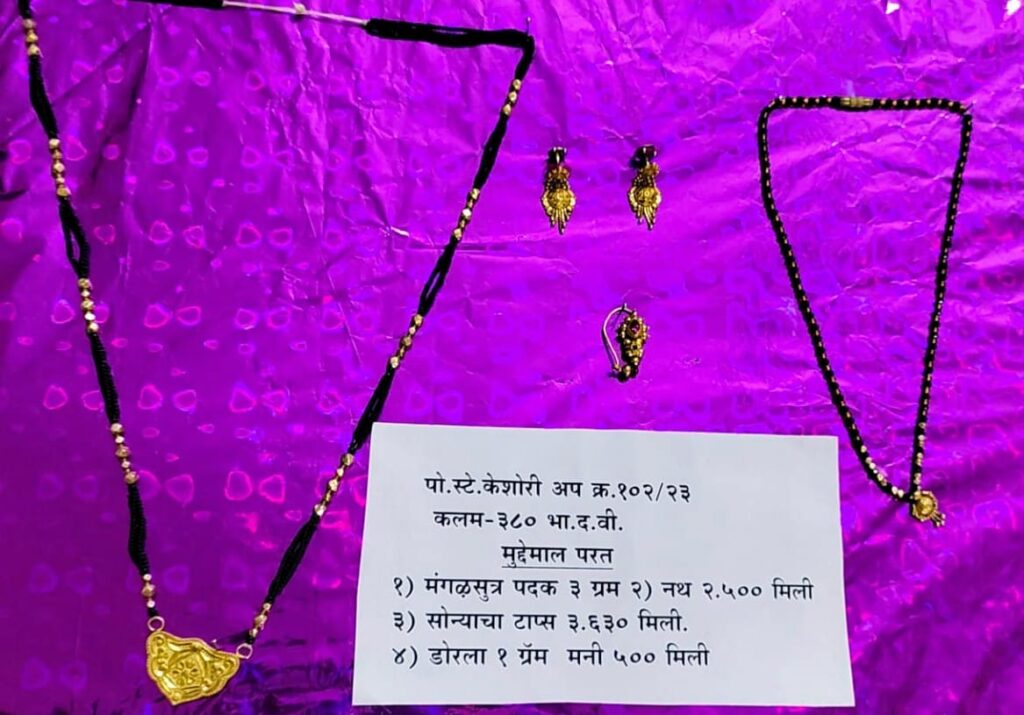 पो.स्टे.केशोरी अप क्र.१०२/२३
कलम-३८० भा.द.वी.
मुद्देमाल परत
१) मंगळसुत्र पदक ३ ग्रम २) नथ २.५०० मिली
३) सोन्याचा टाप्स ३.६३० मिली.
४) डोरला १ ग्रॅम मनी ५०० मिली